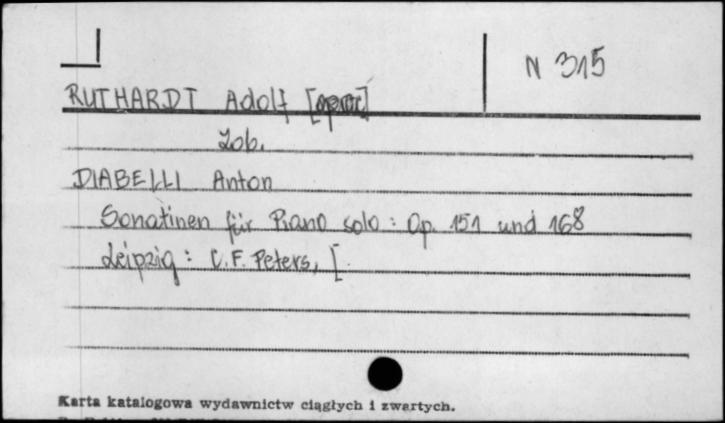 N 315
RUTHARDT Adolf [oprac]
Zob.
DIABELLI Anton
Sonatinen für Piano solo : Op. 151 und 168
Leipzig : C.F. Peters, [
Karta katalogowa wydawnictw ciągłych i zwartych.